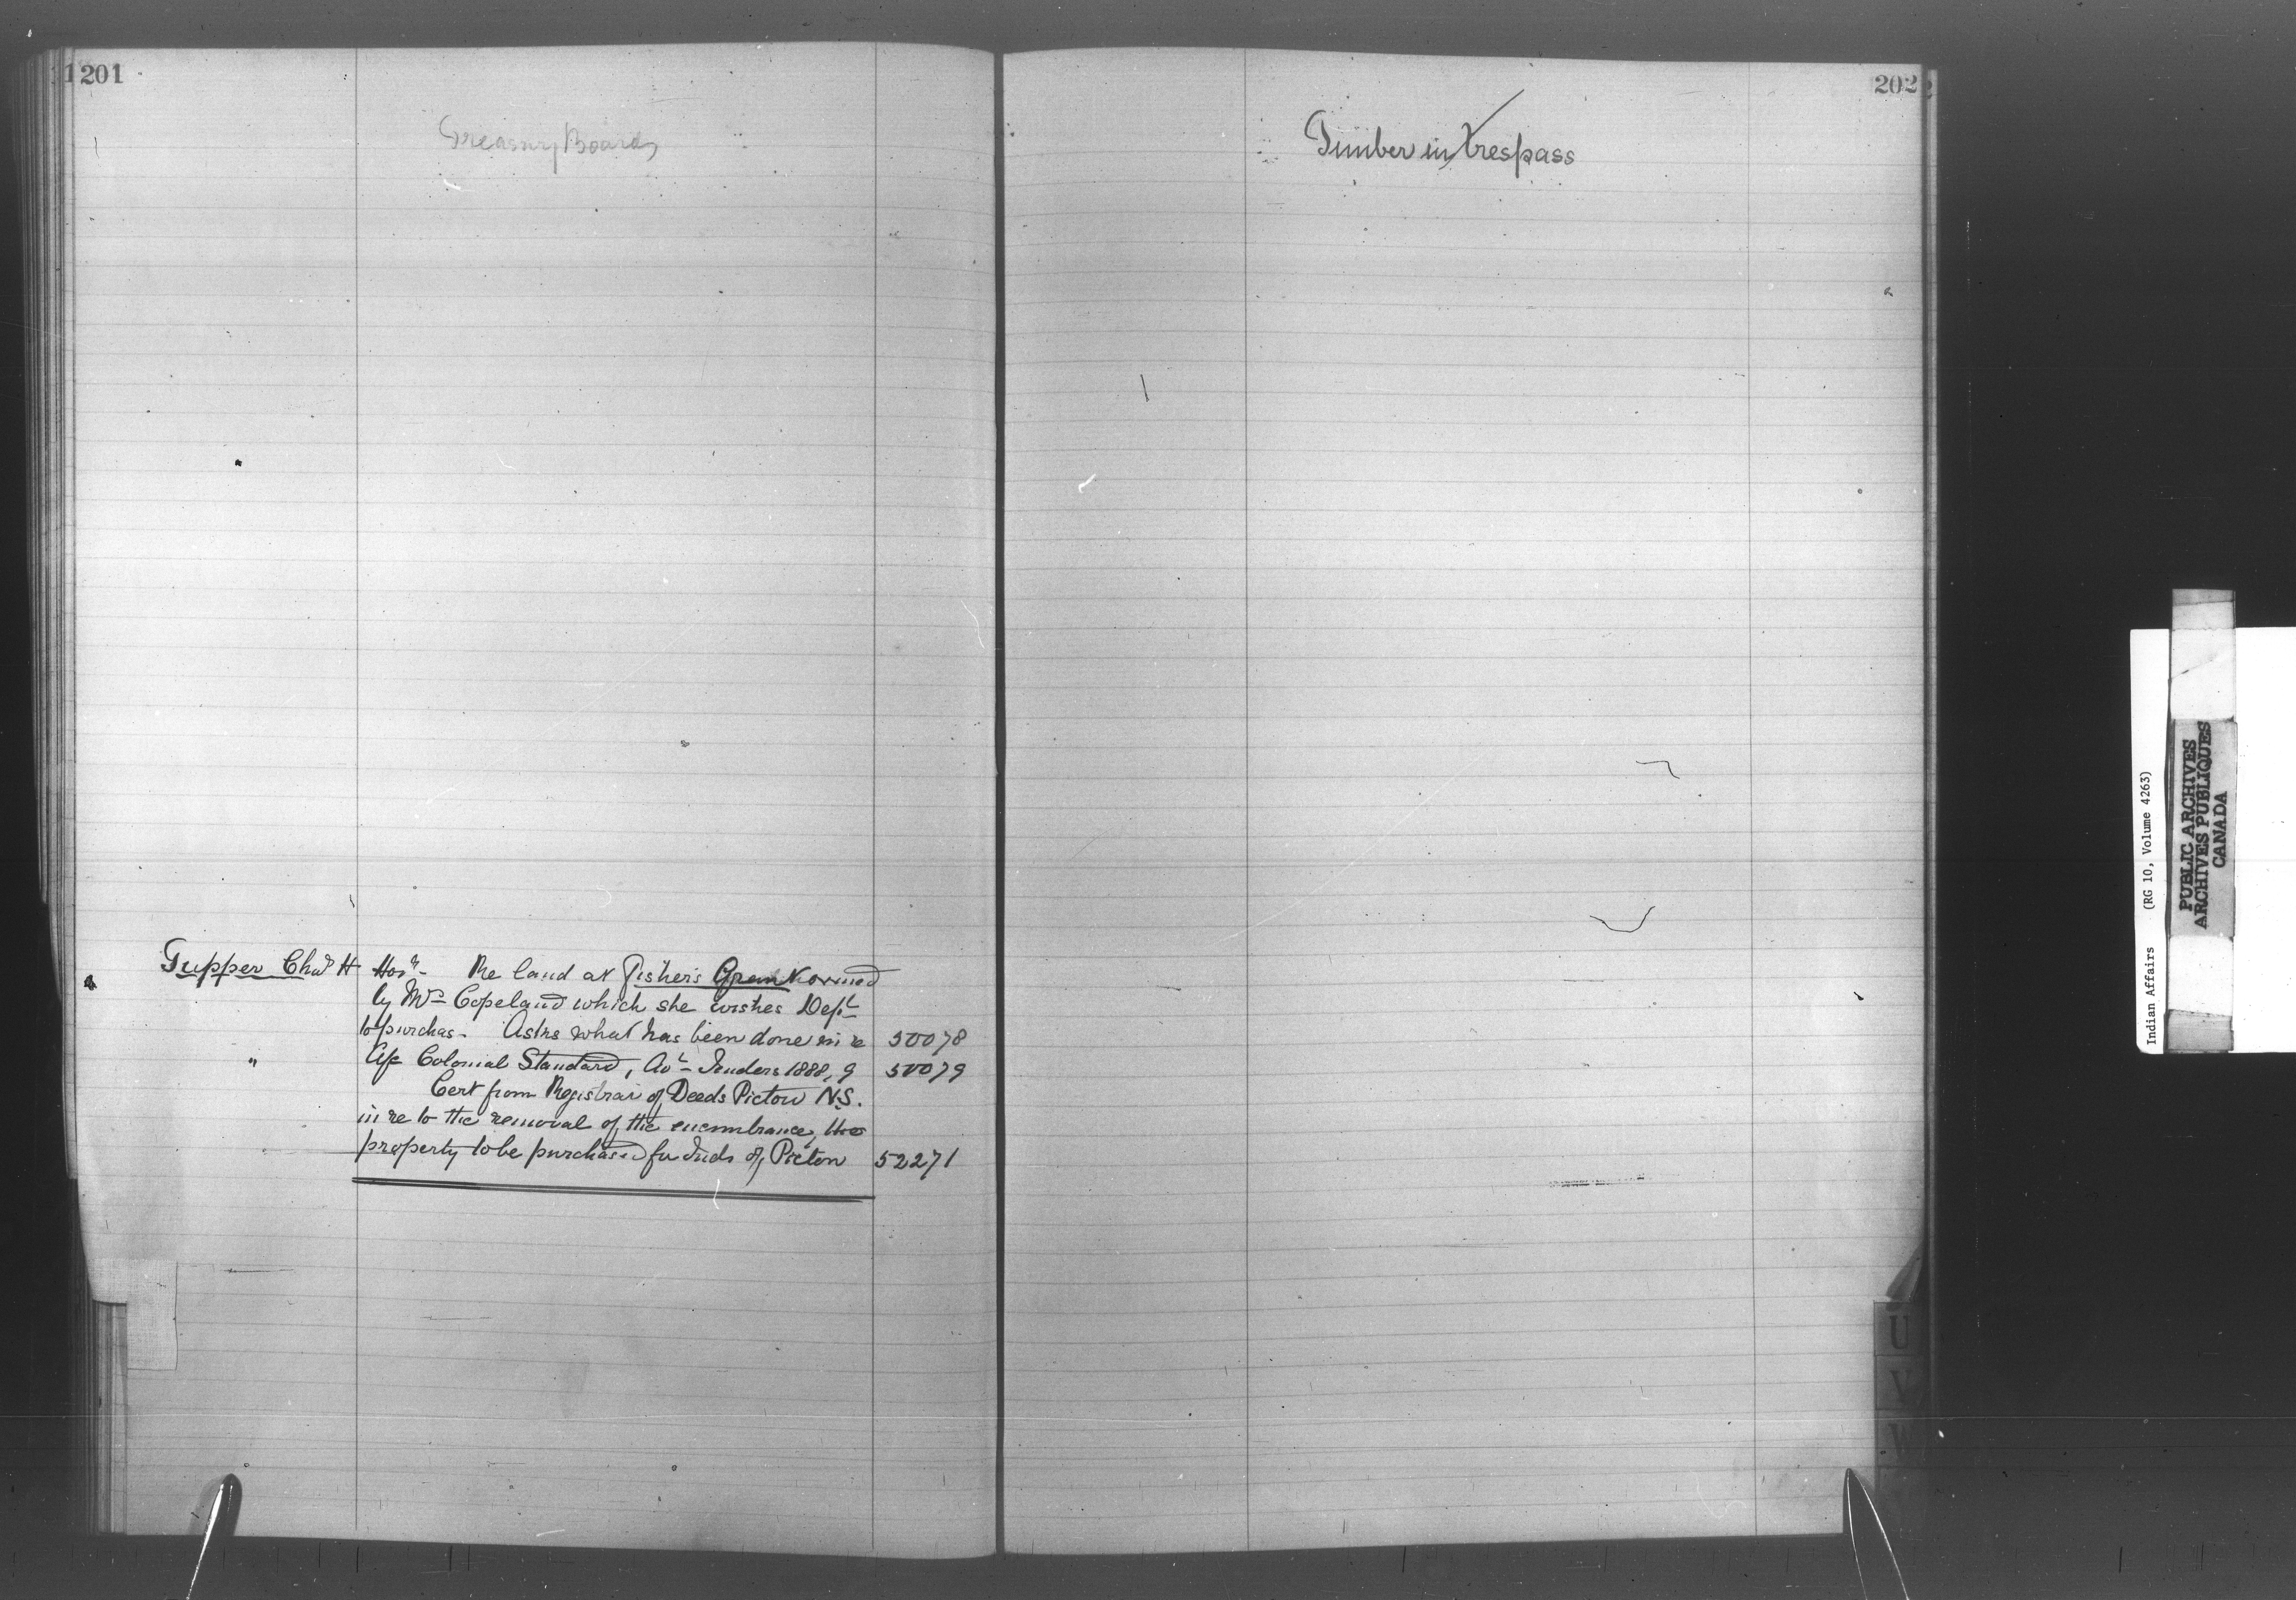 1201
Treasury Board
Tupper Chas H Honr. Re land at Fisher's Grant owned
by Mrs Copeland which she wishes Dept
to purchas- Asks what has been done in re 50078
" A/c Colonial Standard, Avt Tenders 1888,9 50079
Cert from Registrar of Deeds Pictou N.S.
in re to the removal of the encumbrance, the
property to be purchased for Inds of Pictou 52271
202
Timber in trespass
U
V
W
Indian Affairs (RG 10, Volume 4263)
PUBLIC ARCHIVES
ARCHIVES PUBLIQUES
CANADA